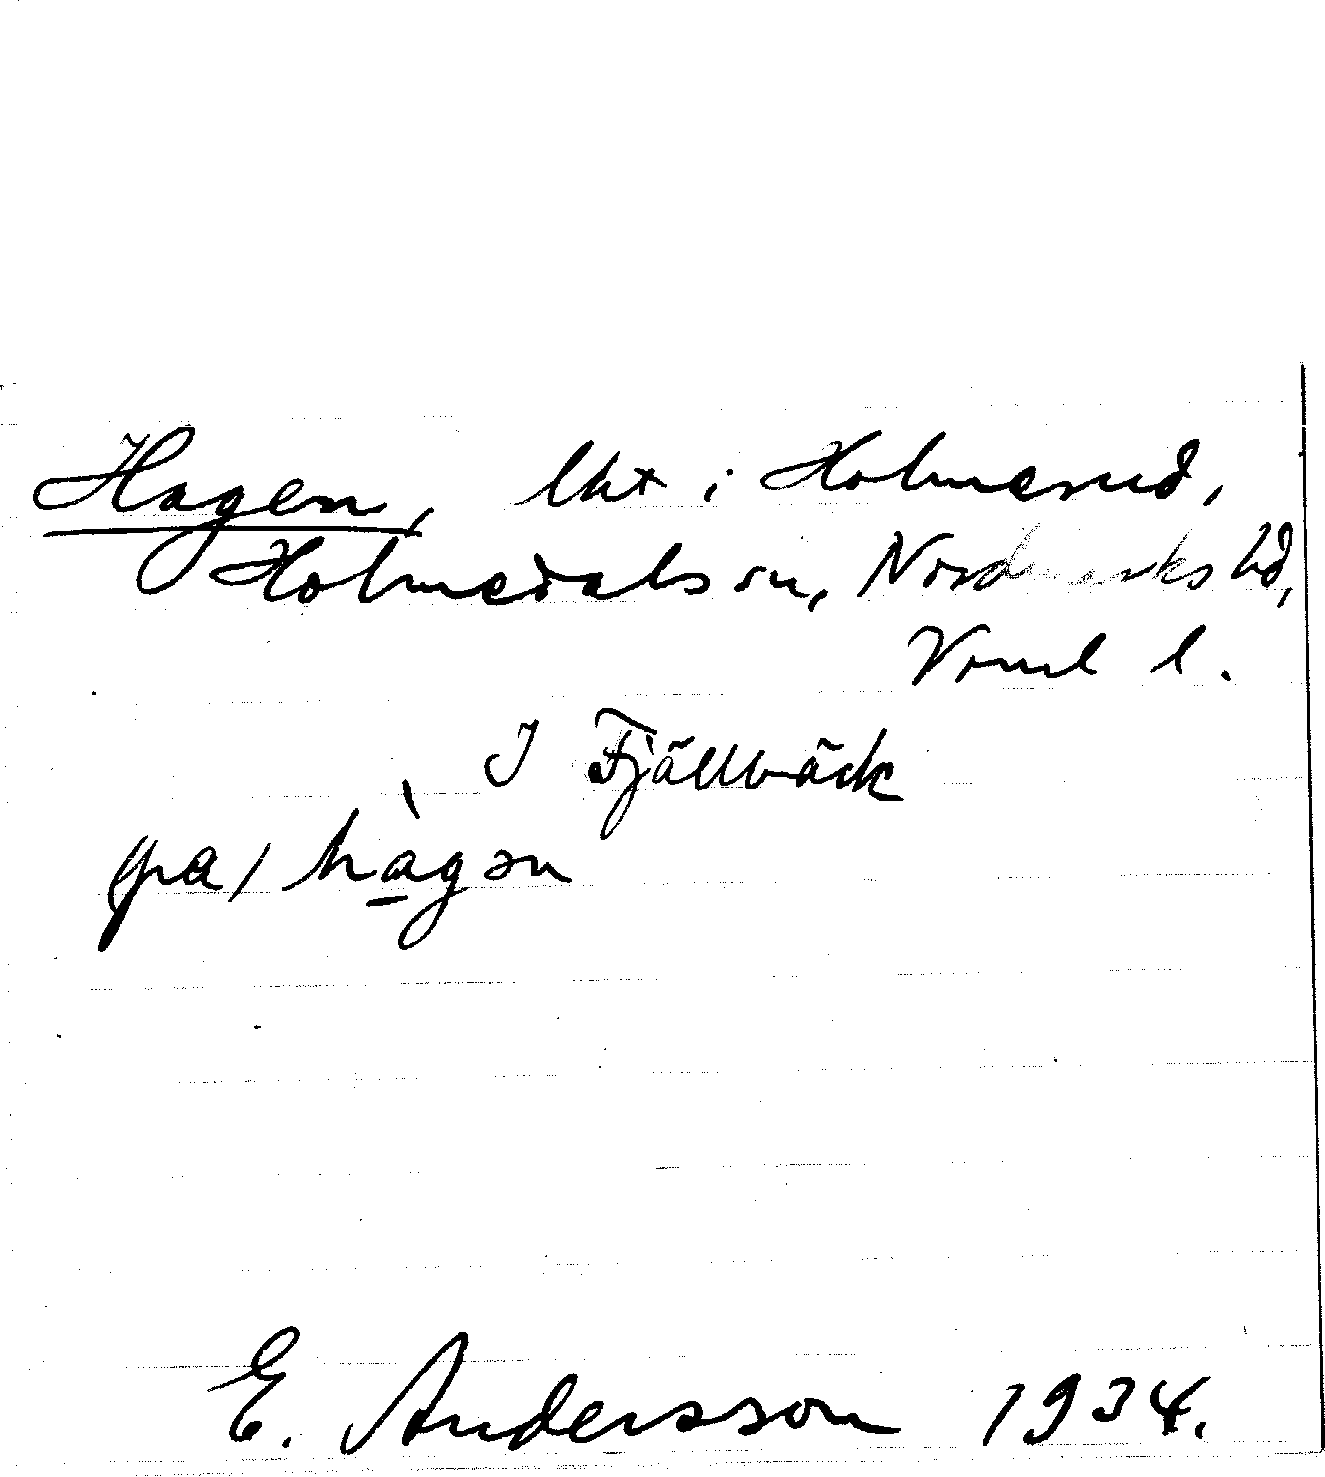 Hagen, lht i Holmerud,
Holmedals sn, Nordmarks hd,
Verml l.
I Fjällbäck
(pa) hàgən
E. Andersson 1934.